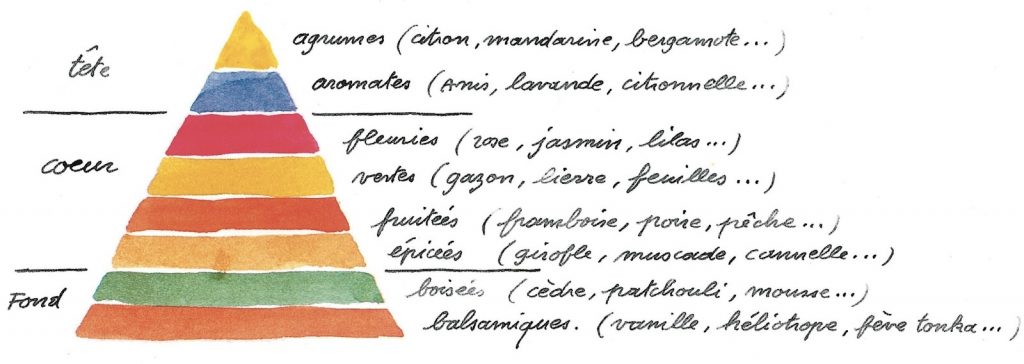 tête
agrumes (citron, mandarine, bergamote...)
aromates (Anis, lavande, citronnelle...)
coeur
fleuries (rose, jasmin, lilas...)
vertes (gazon, lierre, feuilles...)
fruitées (framboise, poire, pêche...)
épicées (girofle, muscade, cannelle...)
Fond
boisées (cèdre, patchouli, mousse...)
balsamiques. (vanille, héliotrope, fève tonka...)